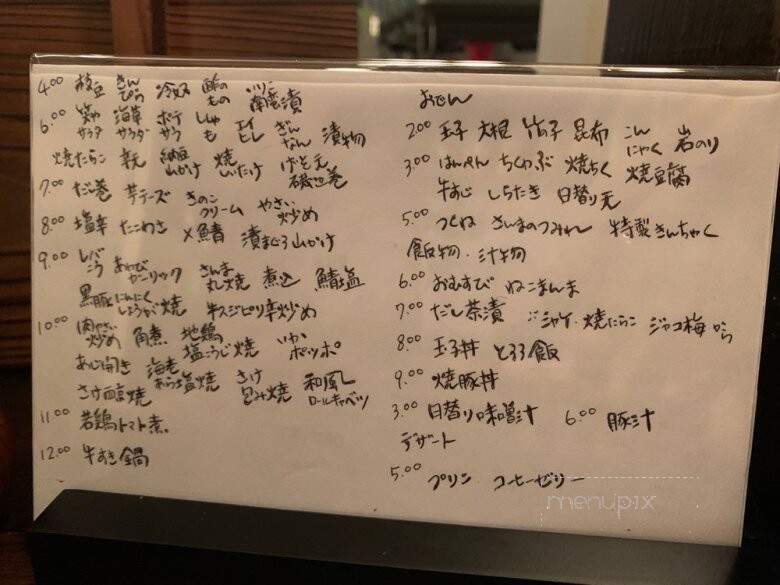 4.00 枝豆 きんぴら 冷奴 酢のもの いわし南蛮漬
6.00 笑や サラダ 海草 サラダ ポテ サラ しゅも エイヒレ ぎんなん 漬物
焼たらこ 納豆 山かけ 焼しいたけ 磯辺巻
7.00 だし巻 芋チーズ きのこ クリーム やさい 炒め
8.00 塩辛 たこわさ 〆鯖 漬まぐろ山かけ
9.00 レバ あわび ガーリック さんま 丸焼 煮込 鯖塩
黒豚にんにく しょうが焼 牛スジピリ辛炒め
10.00 肉やさい 炒め 角煮 地鶏 塩こうじ焼 いか ポッポ
あじ開き 海老 あらら塩焼 さけ 包み焼 和風 ロールキャベツ
さけ西京焼
11.00 若鶏トマト煮
12.00 牛すき鍋
おでん
2.00 玉子 大根 竹の子 昆布 こんにゃく 岩のり
3.00 はんぺん ちくわぶ 焼ちく 焼豆腐
牛すじ しらたき 日替り
5.00 つくね さんまのつみれ 特製きんちゃく
飯物・汁物
6.00 おむすび ねこまんま
7.00 だし茶漬 シャケ・焼たらこ ジャコ梅
8.00 玉子丼 とろろ飯
9.00 焼豚丼
3.00 日替り味噌汁 6.00 豚汁
デザート
5.00 プリン コーヒーゼリー
menupix